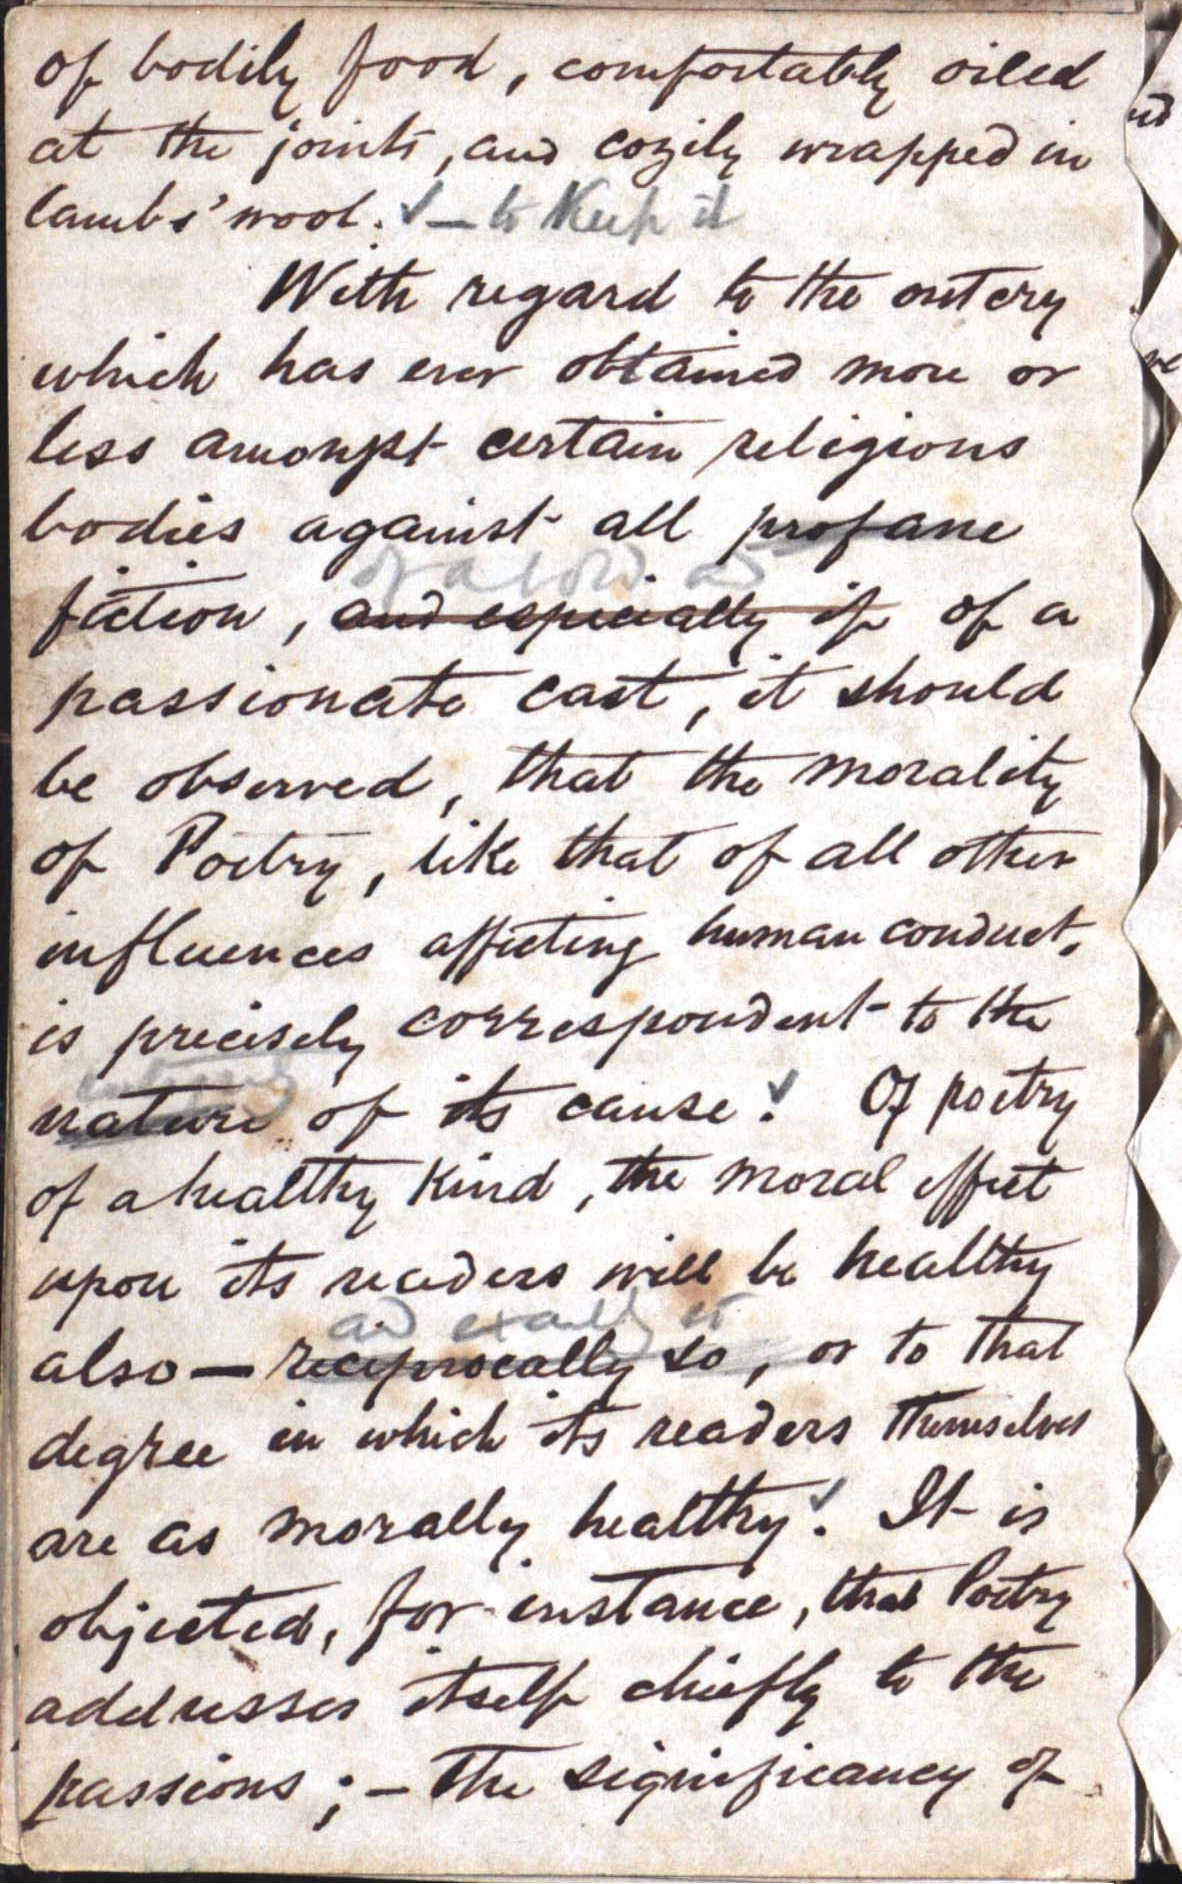 of bodily food, comfortably oiled
at the joints, and cozily wrapped in
lambs' wool. ✓ — to Keep it
With regard to the outcry
which has ever obtained more or
less amongst certain religious
bodies against all profane
of a
fiction, and especially if of a
passionate cast, it should
be observed, that the morality
of Poetry, like that of all other
influences affecting human conduct,
is precisely correspondent to the
nature of its cause. ✓ Of poetry
of a healthy Kind, the moral effect
upon its readers will be healthy
and exactly
also — reciprocally so, or to that
degree in which its readers themselves
are as morally healthy. ✓ It is
objected, for instance, that Poetry
addresses itself chiefly to the
passions; — The significancy of